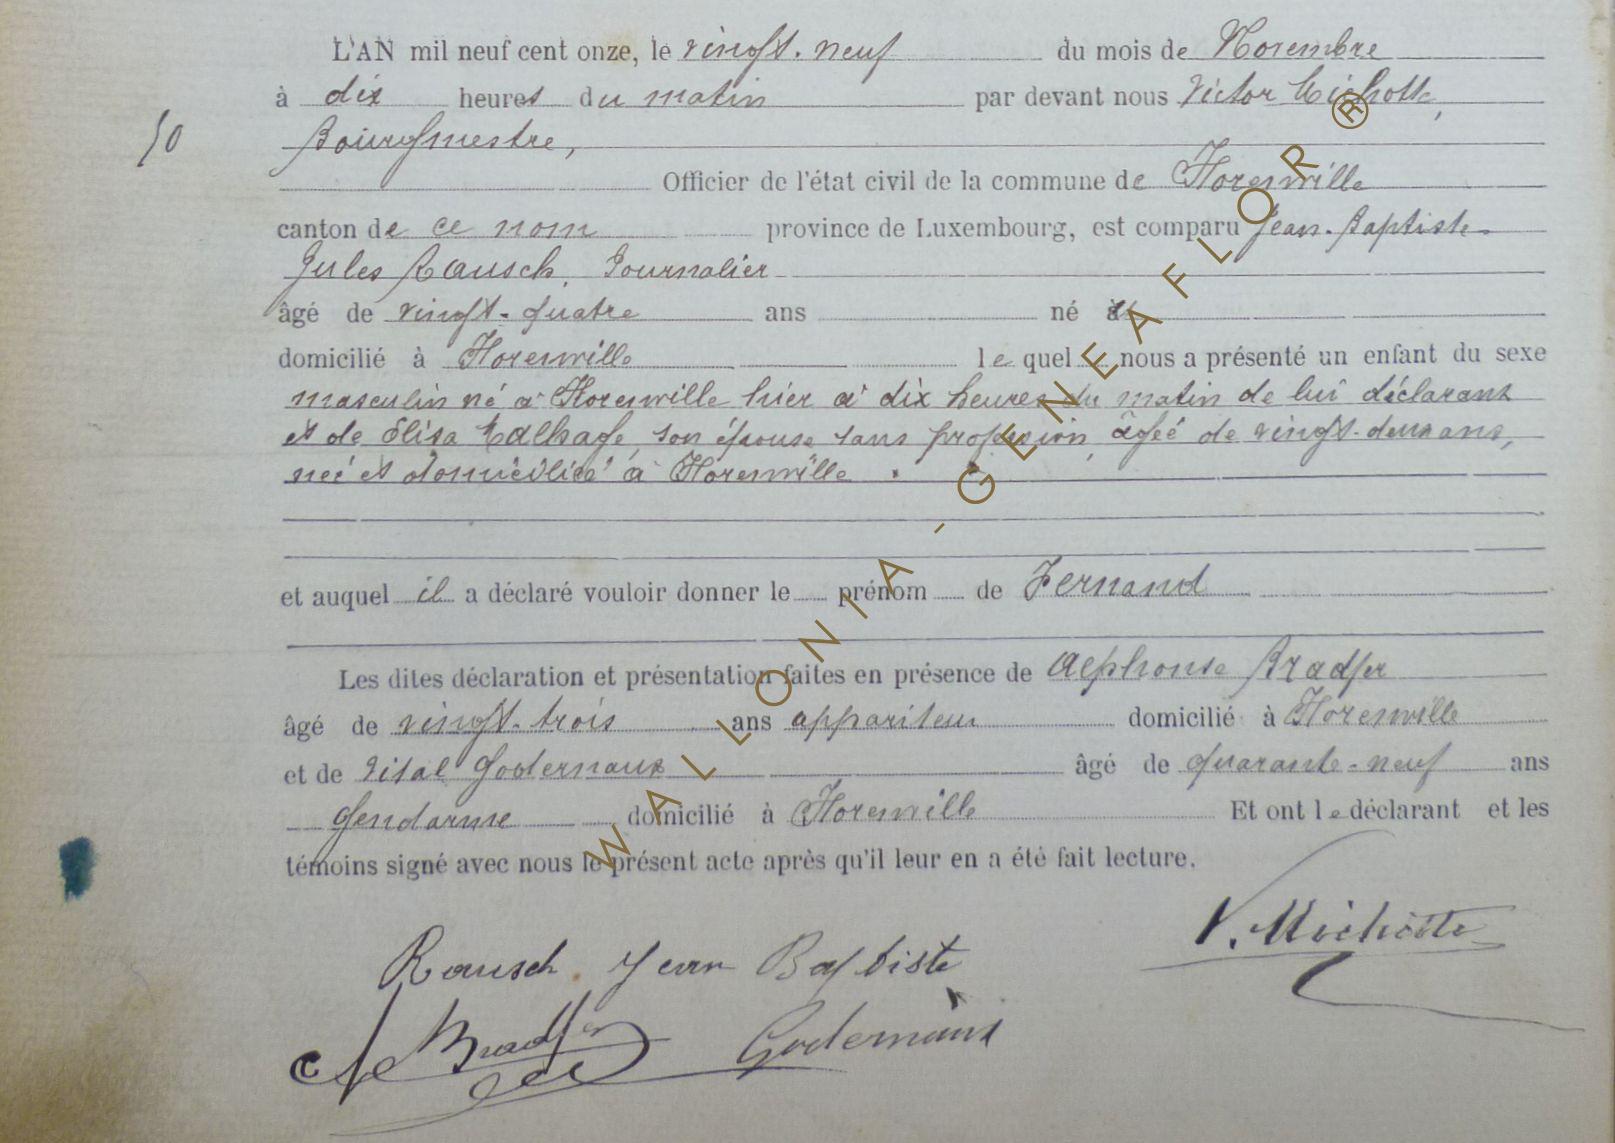 L'AN mil neuf cent onze, le vingt-neuf du mois de Novembre
à dix heures du matin par devant nous Victor Michotte,
50
Bourgmestre,
Officier de l'état civil de la commune de Florenville
canton de ce nom province de Luxembourg, est comparu Jean-Baptiste-
Jules Rausch, Journalier
âgé de vingt-quatre ans né à
domicilié à Florenville lequel nous a présenté un enfant du sexe
masculin né à Florenville hier à dix heures du matin de lui déclarant
et de Elisa son épouse sans profession, âgée de vingt-deux ans,
née et domiciliée à Florenville.
et auquel il a déclaré vouloir donner le prénom de Fernand
Les dites déclaration et présentation faites en présence de Alphonse Bradfer
âgé de vingt-trois ans appariteur domicilié à Florenville
et de Vital Godernaux âgé de quarante-neuf ans
Gendarme domicilié à Florenville Et ont le déclarant et les
témoins signé avec nous le présent acte après qu'il leur en a été fait lecture.
V. Michotte
Rausch Jean Baptiste
Bradfer Godernaux
WALLONIA-GENEAFLOR®